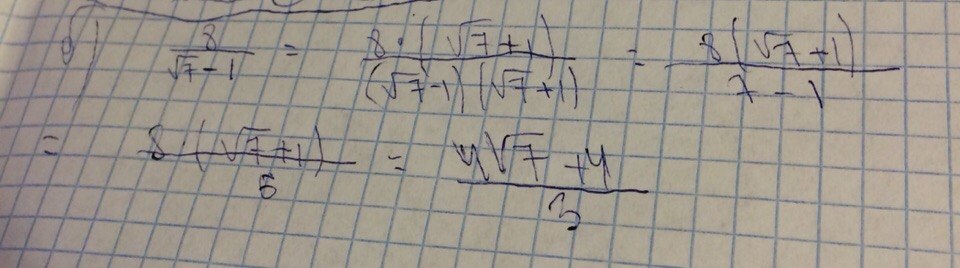 д) 8/(√7-1) = 8·(√7+1)/((√7-1)(√7+1)) = 8(√7+1)/(7-1)
= 8(√7+1)/6 = (4√7+4)/3